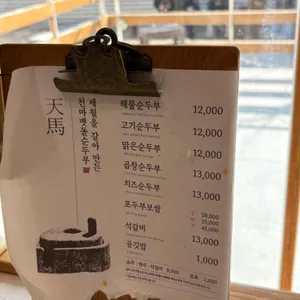 天馬
세월을 갈아 만든
천마맷돌순두부
해물순두부 12,000
고기순두부 12,000
맑은순두부 12,000
곱창순두부 13,000
치즈순두부 13,000
모두부보쌈 28,000
35,000
41,000
석갈비 13,000
공깃밥 1,000
소주 / 맥주 / 막걸리 5,000 음료 2,000